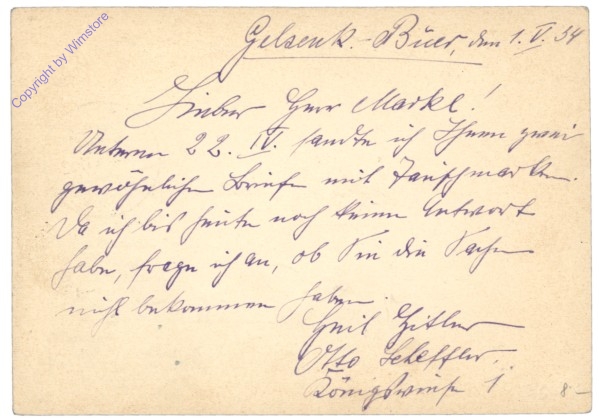 Copyright by Wimstore
Gelsenk.-Buer, den 1. V. 34
Lieber Herr Markl!
Unterm 22. IV. sandte ich Ihnen zwei
gewöhnliche Briefe mit Tauschmarken.
Da ich bis heute noch keine Antwort
habe, frage ich an, ob Sie die Sachen
nicht bekommen haben.
Heil Hitler
Otto Scheffler.
Königswiese 1
8 –